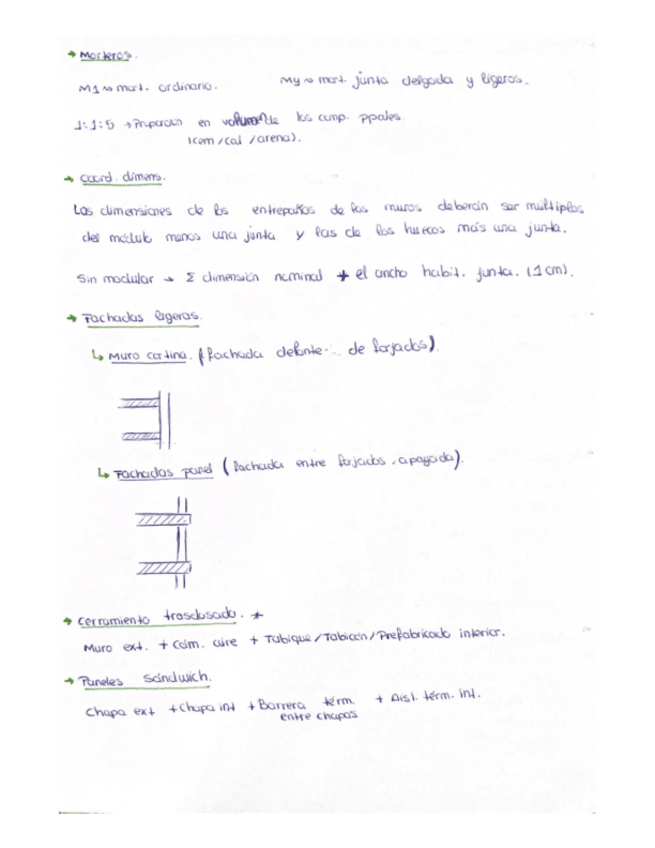 → Morteros.
M1 ~> mort. ordinario. My ~> mort. junta delgada y ligeros.
1:1:5 → Preparación en volumen de los comp. ppales.
(cem/cal/arena).
→ Coord. dimens.
Las dimensiones de los entrepaños de los muros deberán ser múltiplos
del módulo menos una junta y las de los huecos más una junta.
Sin modular → Σ dimensión nominal + el ancho habit. junta. (1 cm).
→ Fachadas ligeras.
↳ Muro cortina. (fachada delante... de forjados).
↳ Fachadas panel (fachada entre forjados, apoyada).
→ Cerramiento trasdosado. *
Muro ext. + Cám. aire + Tabique/Tabicón/Prefabricado interior.
→ Paneles sándwich.
Chapa ext + Chapa int + Barrera térm. + Aisl. térm. int.
entre chapas